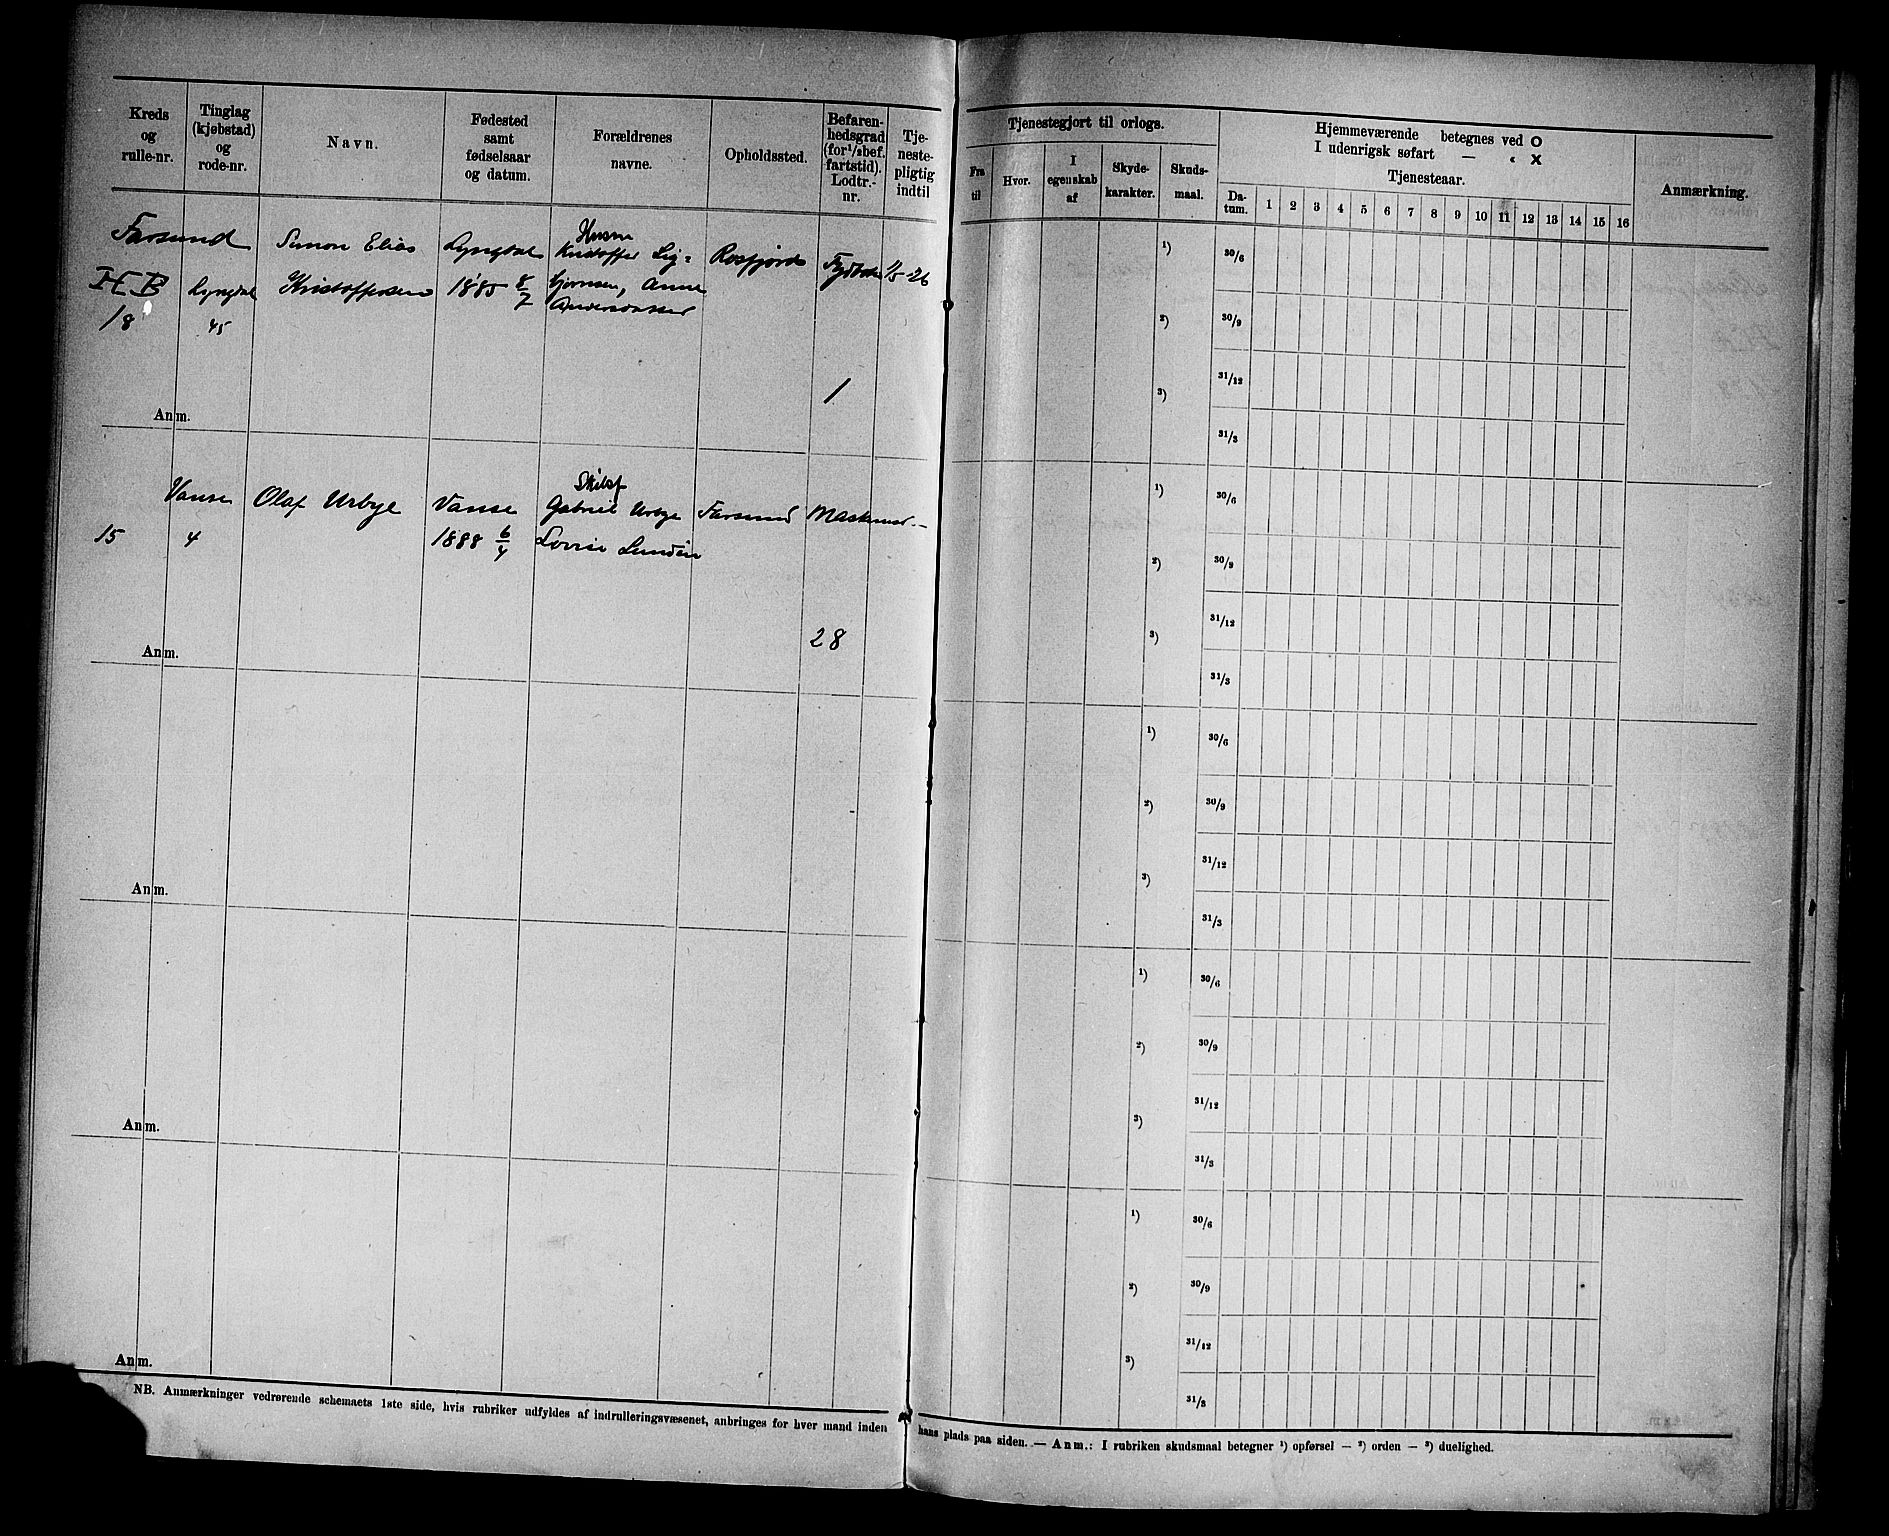 Kreds
og
rulle-nr.
Tinglag
(kjøbstad)
og
rode-nr.
Navn.
Fødested
samt
fødselsaar
og datum.
Forældrenes
navne.
Opholdssted.
Befaren-
hedsgrad
(for 1/3 bef.
fartstid).
Lodtr.-
nr.
Tje-
neste-
pligtig
indtil
Farsund
18
Lyngdal
45
Simon Elias
Kristoffersen
Lyngdal
1885 8/7
Husm
Kristoffer Sig=
bjørnsen, Anne
Andersdatter
Rosfjord
1/5 26
1
Anm.
15
Vanse
4
Olaf Urbye
Vanse
1888 6/4
Skibsf
Gabriel Urbye
Lovise Lundén
Farsund
28
Anm.
Anm.
Anm.
Anm.
NB. Anmærkninger vedrørende schemaets 1ste side, hvis rubriker udfyldes af indrulleringsvæsenet, anbringes for hver mand inden
Tjenestegjort til orlogs.
Fra
til
Hvor.
I
egenskab
af
Skyde-
karakter.
Skuds-
maal.
Hjemmeværende betegnes ved O
I udenrigsk søfart — „ X
Tjenesteaar.
Da-
tum.
1 2 3 4 5 6 7 8 9 10 11 12 13 14 15 16
Anmærkning.
1) 30/6
2) 30/9
31/12
3)
31/3
1) 30/6
2) 30/9
31/12
3)
31/3
1) 30/6
2) 30/9
31/12
3)
31/3
1) 30/6
2) 30/9
31/12
3)
31/3
1) 30/6
2) 30/9
31/12
3)
31/3
hans plads paa siden. — Anm.: I rubriken skudsmaal betegner 1) opførsel — 2) orden — 3) duelighed.